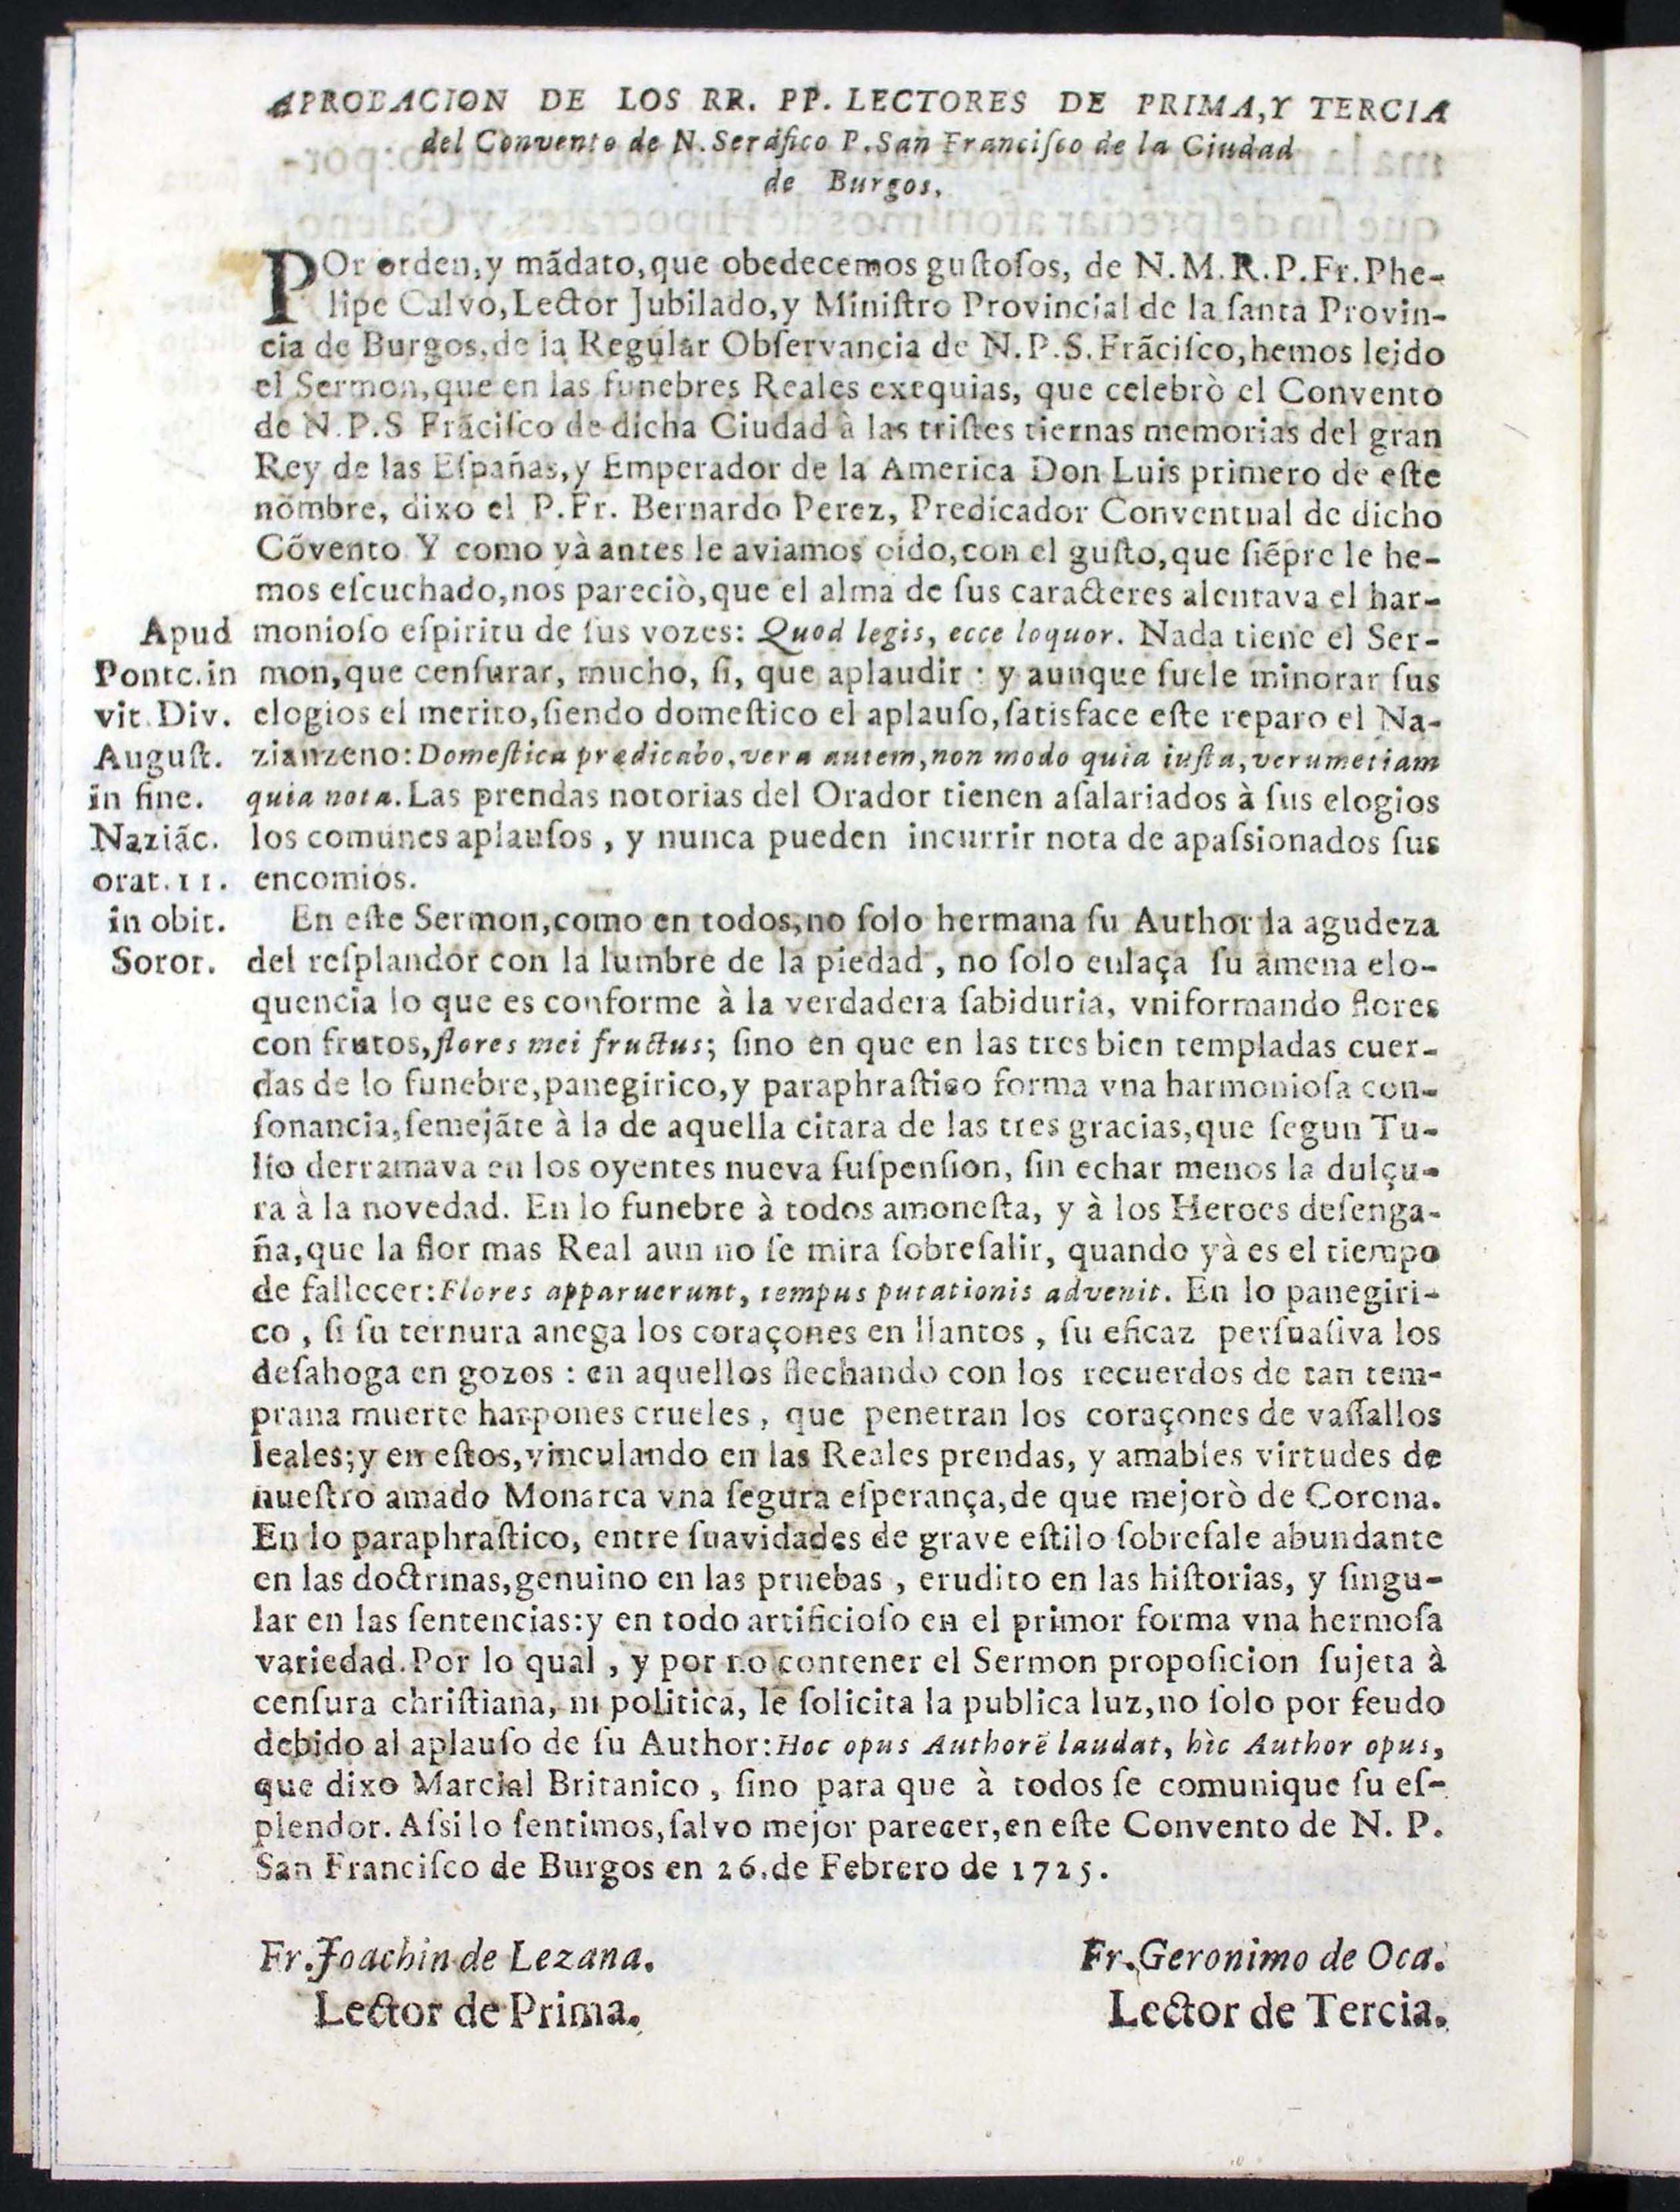 APROBACION DE LOS RR. PP. LECTORES DE PRIMA, Y TERCIA
del Convento de N. Seráfico P. San Franciſco de la Ciudad
de Burgos.
POr orden, y mãdato, que obedecemos guſtoſos, de N. M. R. P. Fr. Phe-
lipe Calvo, Lector Jubilado, y Miniſtro Provincial de la ſanta Provin-
cia de Burgos, de la Regular Obſervancia de N. P. S. Frãciſco, hemos leido
el Sermon, que en las funebres Reales exequias, que celebrò el Convento
de N. P. S Frãciſco de dicha Ciudad à las triſtes tiernas memorias del gran
Rey de las Eſpañas, y Emperador de la America Don Luis primero de eſte
nombre, dixo el P. Fr. Bernardo Perez, Predicador Conventual de dicho
Cõvento Y como yà antes le aviamos oído, con el guſto, que ſiẽpre le he-
mos eſcuchado, nos pareciò, que el alma de ſus caracteres alentava el har-
monioſo eſpiritu de ſus vozes: Quod legis, ecce loquor. Nada tiene el Ser-
mon, que cenſurar, mucho, ſi, que aplaudir: y aunque ſuele minorar ſus
elogios el merito, ſiendo domeſtico el aplauſo, ſatisface eſte reparo el Na-
zianzeno: Domeſtica prędicabo, vera autem, non modo quia iuſta, verumetiam
quia nota. Las prendas notorias del Orador tienen aſalariados à ſus elogios
los comunes aplauſos, y nunca pueden incurrir nota de apaſsionados ſus
encomios.
Apud
Ponte. in
vit. Div.
Auguſt.
in fine.
Naziãc.
orat. 11.
in obit.
Soror.
En eſte Sermon, como en todos, no ſolo hermana ſu Author la agudeza
del reſplandor con la lumbre de la piedad, no ſolo enlaça ſu amena elo-
quencia lo que es conforme à la verdadera ſabiduria, vniformando flores
con frutos, flores mei fructus; ſino en que en las tres bien templadas cuer-
das de lo funebre, panegirico, y paraphraſtico forma vna harmonioſa con-
ſonancia, ſemejãte à la de aquella citara de las tres gracias, que ſegun Tu-
lio derramava en los oyentes nueva ſuſpenſion, ſin echar menos la dulçu-
ra à la novedad. En lo funebre à todos amoneſta, y à los Heroes deſenga-
ña, que la flor mas Real aun no ſe mira ſobreſalir, quando yà es el tiempo
de fallecer: Flores apparuerunt, tempus putationis advenit. En lo panegiri-
co, ſi ſu ternura anega los coraçones en llantos, ſu eficaz perſuaſiva los
deſahoga en gozos: en aquellos flechando con los recuerdos de tan tem-
prana muerte harpones crueles, que penetran los coraçones de vaſſallos
leales; y en eſtos, vinculando en las Reales prendas, y amables virtudes de
nueſtro amado Monarca vna ſegura eſperança, de que mejorò de Corona.
En lo paraphraſtico, entre ſuavidades de grave eſtilo ſobreſale abundante
en las doctrinas, genuino en las pruebas, erudito en las hiſtorias, y ſingu-
lar en las ſentencias: y en todo artificioſo en el primor forma vna hermoſa
variedad. Por lo qual, y por no contener el Sermon propoſicion ſujeta à
cenſura chriſtiana, ni politica, le ſolicita la publica luz, no ſolo por feudo
debido al aplauſo de ſu Author: Hoc opus Authorẽ laudat, hìc Author opus,
que dixo Marcial Britanico, ſino para que à todos ſe comunique ſu eſ-
plendor. Aſsi lo ſentimos, ſalvo mejor parecer, en eſte Convento de N. P.
San Franciſco de Burgos en 26. de Febrero de 1725.
Fr. Joachin de Lezana. Fr. Geronimo de Oca.
Lector de Prima. Lector de Tercia.